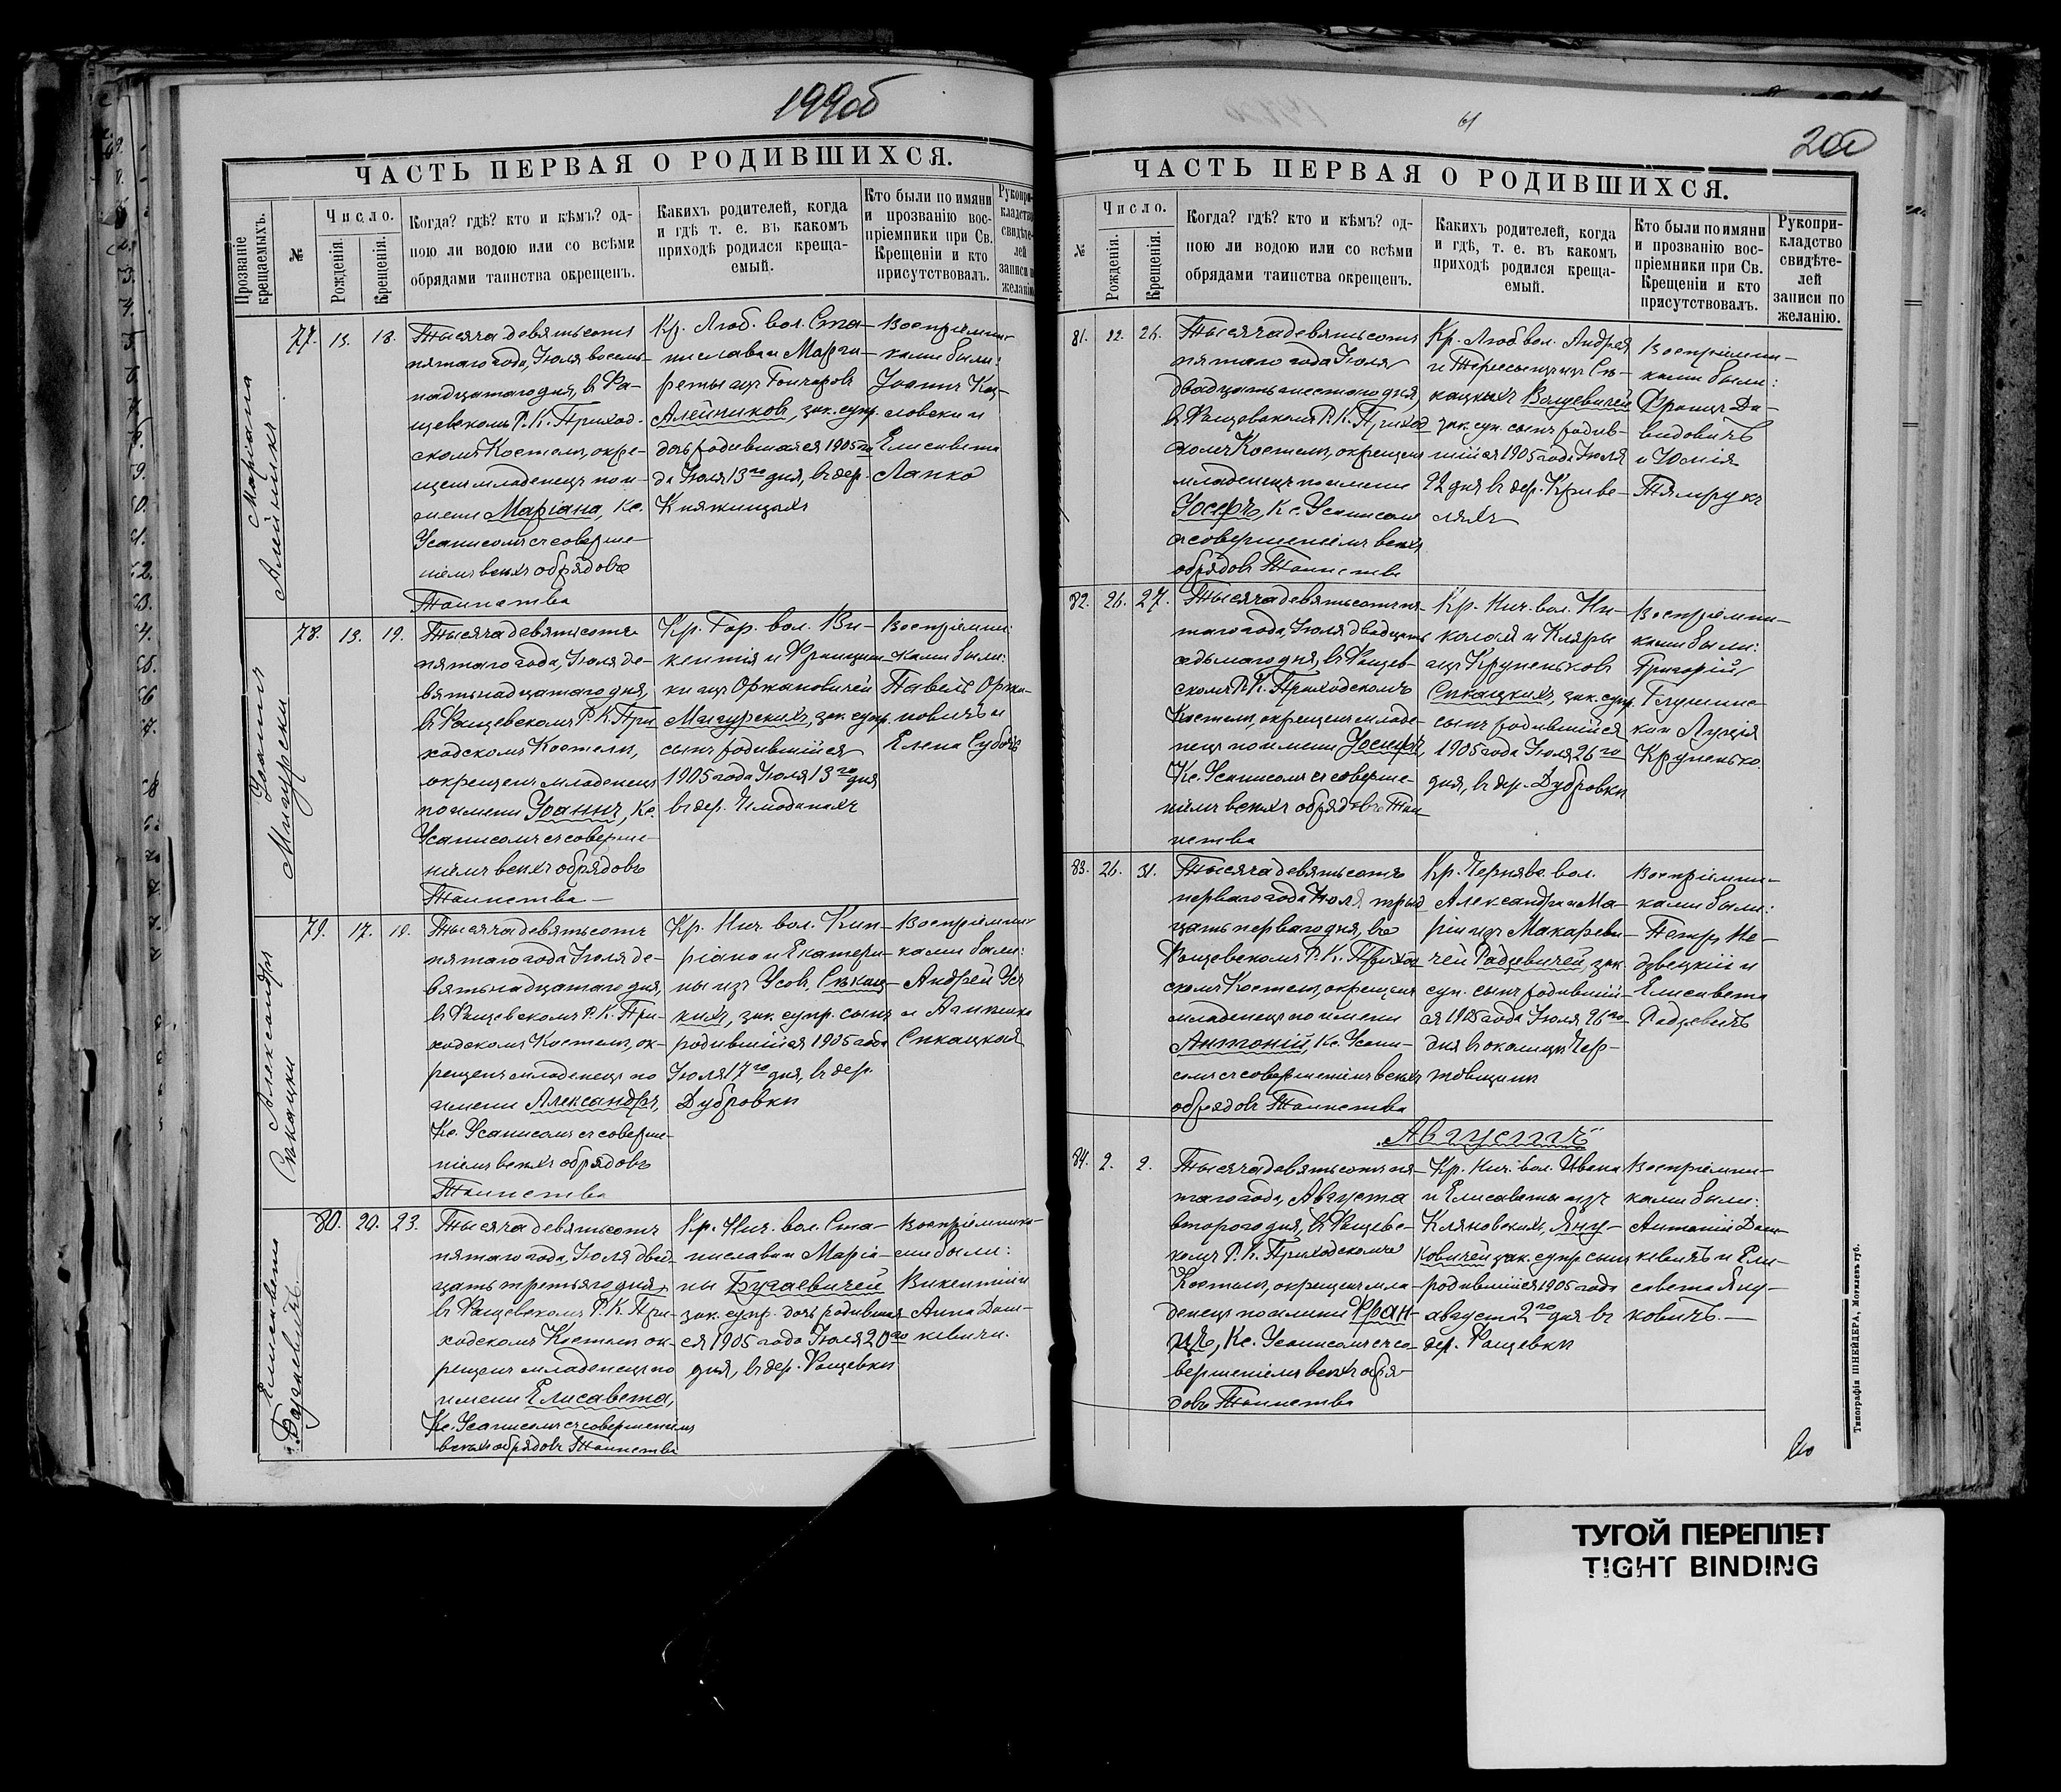 199об
ЧАСТЬ ПЕРВАЯ О РОДИВШИХСЯ.
Прозваніе крещаемыхъ.
№
Число.
Рожденія.
Крещенія.
Когда? гдѣ? кто и кѣмъ? од-
ною ли водою или со всѣми
обрядами таинства окрещенъ.
Какихъ родителей, когда
и гдѣ т. е. въ какомъ
приходѣ родился креща-
емый.
Кто были по имяни
и прозванію вос-
пріемники при Св.
Крещеніи и кто
присутствовалъ.
Маріанна
77. 13. 18.
Тысяча девятьсотъ
пятаго года, Іюля восем-
надцатаго дня, въ Фа-
щевскомъ Р. К. Приход-
скомъ Костелѣ, окре-
щенъ младенецъ по и-
мени Маріана, Кс.
Усаписомъ съ соверше-
ніемъ всѣхъ обрядовъ
Таинства
Кр. Люб. вол. Ста-
нислава и Марга-
реты изъ Гончаровъ
Алейниковъ, зак. супр.
дочь родившаяся 1905 го-
да Іюля 13го дня, въ дер.
Княжицахъ
Воспріемни-
ками были:
Іоаннъ Коз-
ловски и
Елисавета
Лапко
Іоаннъ
Мигурски
78. 13. 19.
Тысяча девятьсотъ
пятаго года, Іюля де-
вятьнадцатаго дня,
въ Фащевскомъ Р. К. При-
ходскомъ Костелѣ,
окрещенъ младенецъ
по имени Іоаннъ, Кс.
Усаписомъ съ соверше-
ніемъ всѣхъ обрядовъ
Таинства
Кр. Гор. вол. Ви-
кентія и Францишки
изъ Оржановичей
Мигурскихъ, зак. супр.
сынъ родившійся
1905 года Іюля 13го дня
въ дер. Чемоданахъ
Воспріемни-
ками были:
Павелъ Оржа-
новичъ и
Елена Суботь
Александръ
Сикацки
79. 17. 19.
Тысяча девятьсотъ
пятаго года, Іюля де-
вятьнадцатаго дня,
въ Фащевскомъ Р. К. При-
ходскомъ Костелѣ, ок-
рещенъ младенецъ по
имени Александръ,
Кс. Усаписомъ съ соверше-
ніемъ всѣхъ обрядовъ
Таинства
Кр. Нич. вол. Кип-
ріана и Екатери-
ны изъ Усовъ, Сикац-
кихъ, зак. супр. сынъ
родившійся 1905 года
Іюля 17го дня, въ дер.
Дубровки
Воспріемни-
ками были:
Андрей Усъ
Сикацкая
Елисавета
Бугаевичъ
80. 20. 23.
Тысяча девятьсотъ
пятаго года, Іюля двад-
цать третьяго дня,
въ Фащевскомъ Р. К. При-
ходскомъ Костелѣ ок-
рещенъ младенецъ по
имени Елисавета,
Кс. Усаписомъ съ совершеніемъ
всѣхъ обрядовъ Таинства
Кр. Нич. вол. Ста-
нислава и Маріа-
ны Бугаевичей
зак. супр. дочь родившая-
ся 1905 года Іюля 20го
дня, въ дер. Фащевки
Воспріемника-
ми были:
Викентій и
Анна Даш-
кевичи.
61
200
ЧАСТЬ ПЕРВАЯ О РОДИВШИХСЯ.
№
Число.
Рожденія.
Крещенія.
Когда? гдѣ? кто и кѣмъ? од-
ною ли водою или со всѣми
обрядами таинства окрещенъ.
Какихъ родителей, когда
и гдѣ, т. е. въ какомъ
приходѣ родился креща-
емый.
Кто были по имяни
и прозванію вос-
пріемники при Св.
Крещеніи и кто
присутствовалъ.
Рукопри-
кладство
свидѣте-
лей
записи по
желанію.
81. 22. 26.
Тысяча девятьсотъ
пятаго года Іюля
двадцать шестого дня,
въ Фащевскомъ Р. К. Приход-
скомъ Костелѣ, окрещенъ
младенецъ по имени
Іосифъ, Кс. Усаписомъ
съ совершеніемъ всѣхъ
обрядовъ Таинства
Кр. Люб. вол. Андрея
и Тересы изъ Си-
кацкихъ
зак. суп. сынъ родив-
шійся 1905 года Іюля
22 дня въ дер. Криве-
ляхъ
Воспріемни-
ками были:
Францъ Да-
видовичъ
и Юлія
82. 26. 27.
Тысяча девятьсотъ пя-
таго года, Іюля двадцать
седьмаго дня, въ Фащев-
скомъ Р. К. Приходскомъ
Костелѣ, окрещенъ младе-
нецъ по имени Іосифъ,
Кс. Усаписомъ съ соверше-
ніемъ всѣхъ обрядовъ Таи-
нства
Кр. Нич. вол. Ни-
колая и Кляры
изъ Крупеньковъ
Сикацкихъ, зак. супр.
сынъ родившійся
1905 года Іюля 26го
дня, въ дер. Дубровки
Воспріемни-
ками были:
Григорій
Крупенько
83. 26. 31.
Тысяча девятьсотъ
перваго года Іюля трид-
цать перваго дня, въ
Фащевскомъ Р. К. Приход-
скомъ Костелѣ, окрещенъ
младенецъ по имени
Антоній, Кс. Усапи-
сомъ съ совершеніемъ всѣхъ
обрядовъ Таинства
Кр. Чернявс. вол.
Александра и Ма-
ріи изъ Макареви-
чей Радзевичей зак.
суп. сынъ родившій-
ся 1905 года Іюля 26го
дня въ околицѣ
Воспріемни-
ками были:
Петръ Не-
дзвецкій и
Елисавета
Радзевичъ
Августъ
84. 2. 2.
Тысяча девятьсотъ пя-
таго года, Августа
второго дня, въ Фащевс-
комъ Р. К. Приходскомъ
Костелѣ, окрещенъ мла-
денецъ по имени Фран-
цъ, Кс. Усаписомъ съ со-
вершеніемъ всѣхъ обря-
довъ Таинства
Кр. Нич. вол. Ивана
и Елисаветы изъ
Кляновскихъ, Яну-
ковичей зак. супр. сынъ
родившійся 1905 года
августа 2го дня въ
дер. Фащевки
Воспріемни-
ками были:
Антоній Даш-
кевичъ и Ели-
савета Яну-
ковичъ.
Типографія ШНЕЙДЕРА, Могилевъ губ.
ТУГОЙ ПЕРЕПЛЕТ
TIGHT BINDING